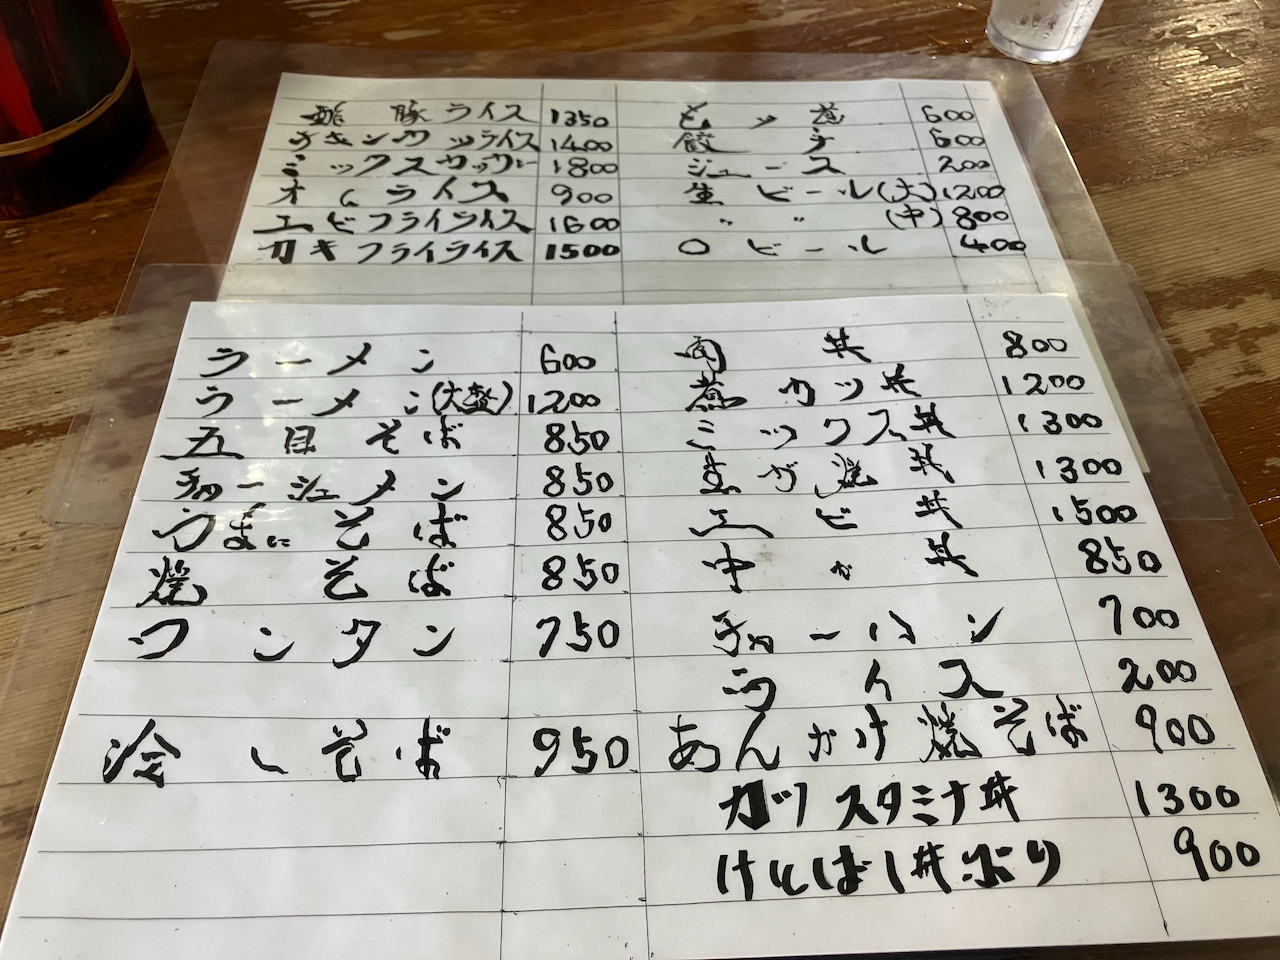 酢豚ライス 1350
チキンカツライス 1400
ミックスカツカレー 1800
オムライス 900
エビフライライス 1600
カキフライライス 1500
もつ煮 600
餃子 600
ジュース 200
生ビール(大) 1200
〃 〃 (中) 800
〇ビール 400
ラーメン 600
ラーメン(大盛) 1200
五目そば 850
チャーシューメン 850
うまにそば 850
焼そば 850
ワンタン 750
冷しそば 950
肉丼 800
煮カツ丼 1200
ミックス丼 1300
生が焼丼 1300
エビ丼 1500
中か丼 850
チャーハン 700
ライス 200
あんかけ焼そば 900
ガッツスタミナ丼 1300
けとばし丼ぶり 900